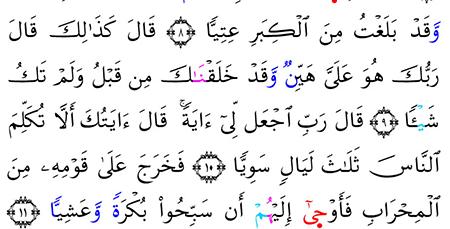 وَّقَدْ بَلَغْتُ مِنَ ٱلْكِبَرِ عِتِيًّا ﴿٨﴾ قَالَ كَذَٰلِكَ قَالَ
رَبُّكَ هُوَ عَلَىَّ هَيِّنٌ وَّقَدْ خَلَقْنَـٰكَ مِن قَبْلُ وَلَمْ تَكُ
شَيْـًٔا ﴿٩﴾ قَالَ رَبِّ ٱجْعَل لِّىٓ ءَايَةً ۚ قَالَ ءَايَتُكَ أَلَّا تُكَلِّمَ
ٱلنَّاسَ ثَلَـٰثَ لَيَالٍ سَوِيًّا ﴿١٠﴾ فَخَرَجَ عَلَىٰ قَوْمِهِۦ مِنَ
ٱلْمِحْرَابِ فَأَوْحَىٰٓ إِلَيْهُمْ أَن سَبِّحُوا۟ بُكْرَةً وَّعَشِيًّا ﴿١١﴾